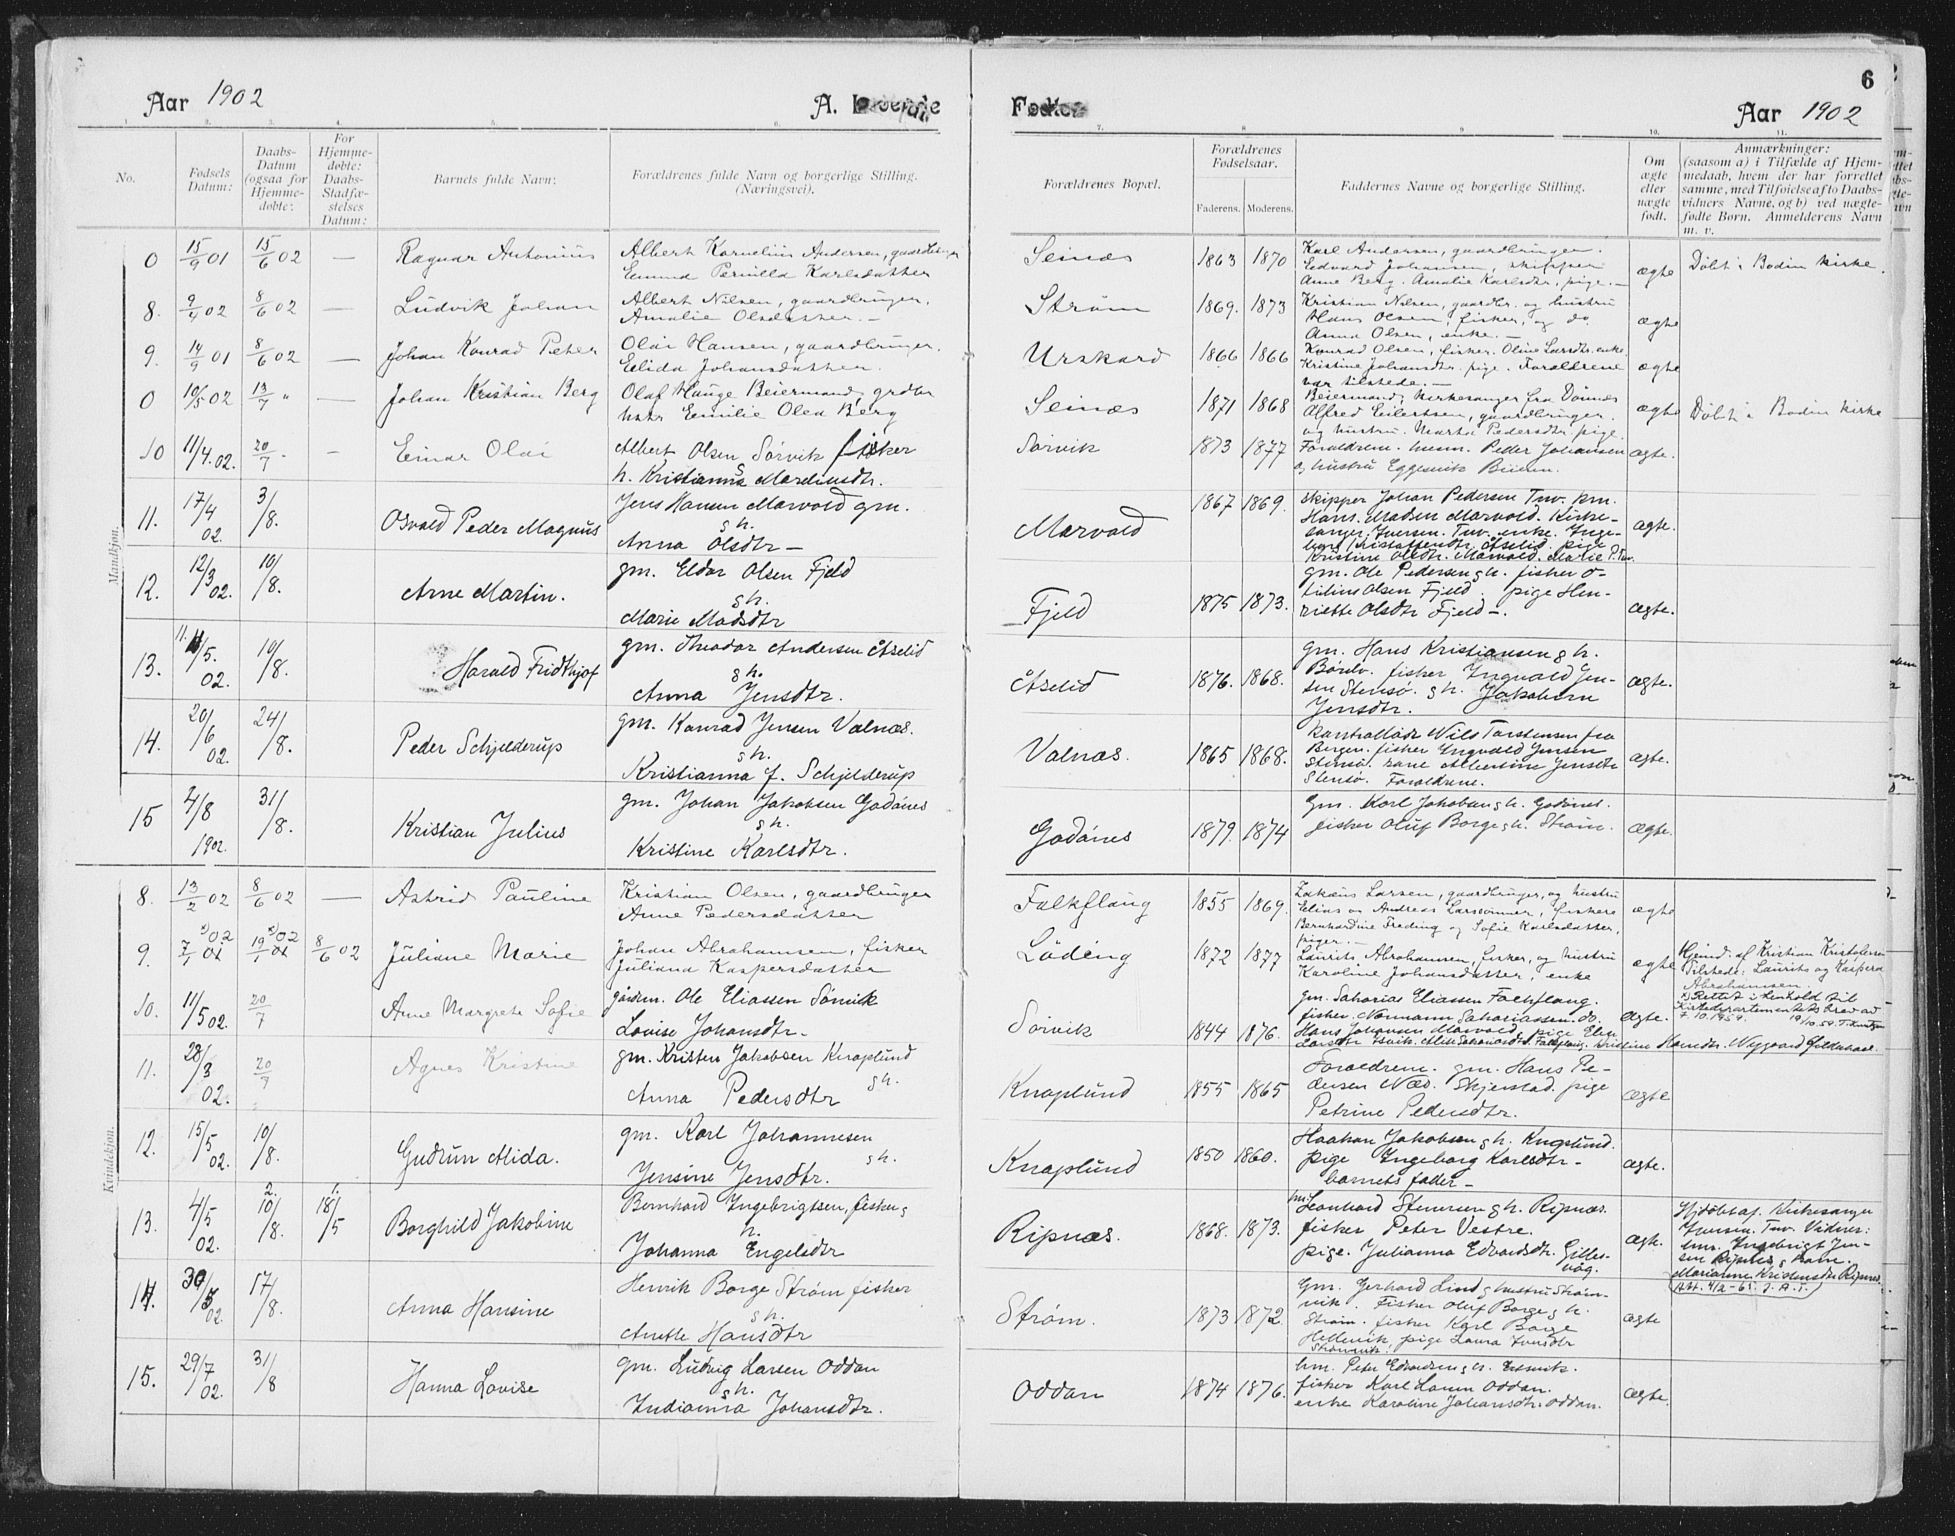 6
Aar 1902
A. Levende
Fødte.
Aar 1902
1. 2. 3. 4. 5. 6. 7. 8 9 10. 11.
No.
Fødsels Datum:
Daabs-Datum (ogsaa for Hjemme-døbte:
For Hjemme-døbte: Daabs-Stadfæ-stelses Datum:
Barnets fulde Navn:
Forældrenes fulde Navn og borgerlige Stilling. (Næringsvei).
Forældrenes Bopæl.
Forældrenes Fødselsaar.
Faderens. Moderens.
Faddernes Navne og borgerlige Stilling.
Om ægte eller uægte født.
Anmærkninger: (saasom a) i Tilfælde af Hjem-medaab, hvem der har forrettet samme, med Tilføielse af to Daabs-vidners Navne, og b) ved uægte-fødte Børn. Anmelderens Navn m. v.
Mandkjøn.
0 15/9 01 15/6 02 — Ragnar Antonius
Albert Kornelius Andersen, gaardbruger
Emma Pernilla Karlsdatter
Seinæs 1863 1870
Karl Andersen, gaardbruger.
Edvard Johansen, skipper
Anne Berg. Amalie Karlsdtr, pige. —
ægte Døbt i Bodin kirke.
8. 9/4 02 8/6 02 — Ludvik Johan
Albert Nilsen, gaardbruger.
Amalie Olsdatter. —
Strøm 1869. 1873
Kristian Nilsen, gaardbr. og hustru
Hans Olsen, fisker, og do.
Anna Olsen, enke. —
ægte
9. 14/9 01 8/6 02 — Johan Konrad Peter
Olai Hansen, gaardbruger.
Elida Johansdatter.
Urskard 1866 1866
Konrad Olsen, fisker. Oline Larsdtr. enke.
Kristine Johansdtr. pige. Forældrene
var tilstede. —
ægte
0 10/5 02 13/7 " — Johan Kristian Berg
Olaf Hauge Beiermand, grdbr
hstr Emilie Olea Berg
Seinæs 1871 1868
Beiermand, kirkesanger fra Dønnes
Alfred Eilertsen, gaardbruger.
og hustru. Marta Pedersdtr pige.
ægte Døbt i Bodin kirke
10 11/4.02. 20/7 - — Einar Olai
Albert Olsen Sörvik fisker
h. Kristianna Mardinsdtr.
Sörvik 1873 1877
Forældrene. husm. Peder Johansen
og hustru Eggesvik Beieren.
ægte.
11. 17/4 02. 3/8. Osvald Peder Magnus
Jens Hansen Marvold gm.
g h.
Anna Olsdtr —
Marvold 1867 1869.
skipper Johan Pedersen Tuv. gm.
Hans Madsen Marvold. Kirke-
sanger Iversen. Tuv. enke. Inge-
borg Kristaffersdtr Åselid. pige
Kristine Olsdtr. Marvold. Marie P. Tuv.
ægte.
12. 12/3 02. 10/8. Arne Martin.
gm. Eldor Olsen Fjeld
g h.
Marie Madsdtr
Fjeld 1875 1873.
gm. Ole Pedersen g h. fisker O-
tilius Olsen Fjeld. pige Hen-
riette Olsdtr Fjeld —.
ægte.
13. 11. 11/5. 02. 10/8. Harald Fridthjof
gm. Theodor Andersen Åselid
g h.
Anna Jensdtr.
Åselid 1876. 1868.
gm. Hans Kristiansen g h.
fisker Ingvald Jen-
sen Stensö. g h. Jakobine
Jensdtr.
ægte.
14. 20/6 02. 24/8. Peder Schjelderup
gm. Konrad Jensen Valnæs.
g h.
Kristianna f. Schjelderup
Valnæs. 1865 1868.
Nils Torstensen fra
Bergen. fisker Ingvald Jensen
Stensö. Albertine Jensdtr
Stensö. Forældrene.
ægte.
15 4/8 1902. 31/8. Kristian Julius
gm. Johan Jakobsen Godönes
g h.
Kristine Karlsdtr.
Godönes 1879. 1874
Gm. Karl Jakobsen g h. Godönes.
fisker Oluf Borge g h. Strøm.
ægte.
Kvindekjøn.
8. 13/2 02 8/6 02 — Astrid Pauline
Kristian Olsen, gaardbruger
Anne Pedersdatter
Falkflaug 1855 1869.
Zakæus Larsen, gaardbruger, og hustru
Elias og Andreas Larssönner, fiskere
Bernhardine Freding og Sofie Karlsdatter,
piger. —
ægte
9. 7/1 x)02 01 19/1 x)02 01 8/6 02 Juliane Marie
Johan Abrahamsen, fisker
Juliana Kaspersdatter
Löding 1872 1877
Laurits Abrahamsen, fisker, og hustru
Karoline Johansdatter, enke
ægte
Hjemd. af Kristian Kristofersen
Tilstede: Laurits og Kaspera
Abrahamsen.
x) Rettet i henhold til
Kirkedepartementets brev av
7. 10. 1959. 19/10. 59.
10. 11/5 02. 20/7 Anne Margrete Sofie
gårdm. Ole Eliassen Sörvik
Lovise Johansdtr.
Sörvik 1844 1876.
gm. Sakarias Eliassen Falkflaug.
fisker. Normann Sakariassen. do.
Hans Johansen Marvold, pige Elen
Larsdtr Esvik. Falkflaug. Kristine Hansdtr. Nygaard Gildeskaal.
ægte.
11. 28/3 02. 20/7 Agnes Kristine
gm. Kristen Jakobsen Knaplund
g h.
Anna Pedersdtr
Knaplund 1855 1865
Forældrene. gm. Hans Pe-
dersen Næs. Skjerstad. pige
Petrine Pedersdtr.
ægte
12. 15/5 02. 10/8. Gudrun Alida.
gm. Karl Johannesen
g h.
Jensine Jensdtr.
Knaplund 1850 1860.
Haakon Jakobsen g h. Knaplund.
pige Ingeborg Karlsdtr —
barnets fader —
ægte.
13. 4/5 02. 2. 10/8. 1. 18/5 Borghild Jakobine
Bernhard Ingebrigtsen, fisker g
h.
Johanna Engelsdtr
Ripnæs. 1868. 1873.
hm. Leonhard Stensen g h. Ripnæs.
fisker Peter Vestre.
pige. Julianna Edvardsdtr. Gilles-
våg.
ægte.
Hjdöbt af. Kirkesanger
Iversen. Tuv. Vidner:
hm. Ingebrigt Jen-
sen Ripnes g kone.
Marianne Kristensdtr Ripnes.
Att. 4/2 - 65. J. A. J.
14. 30/5 02. 17/8. Anna Hansine
Henrik Borge Strøm fisker
g h.
Anette Hansdtr
Strøm. 1873 1872.
Gm. Gerhard Lind g hustru Strøm-
vik. Fisker Oluf Borge g h.
Strøm. fisker Karl Borge
Hellevik pige Laura Jensdtr
Strømvik.
ægte
15. 29/7 02. 31/8 Hanna Lovise
gm. Ludvig Larsen Oddan
g h.
Indianna Johansdtr.
Oddan 1874 1876.
hm. Peter Edvardsen g h. Evjevik.
fisker Karl Larsen Oddan.
enke Karoline Johansdtr. Oddan.
ægte.